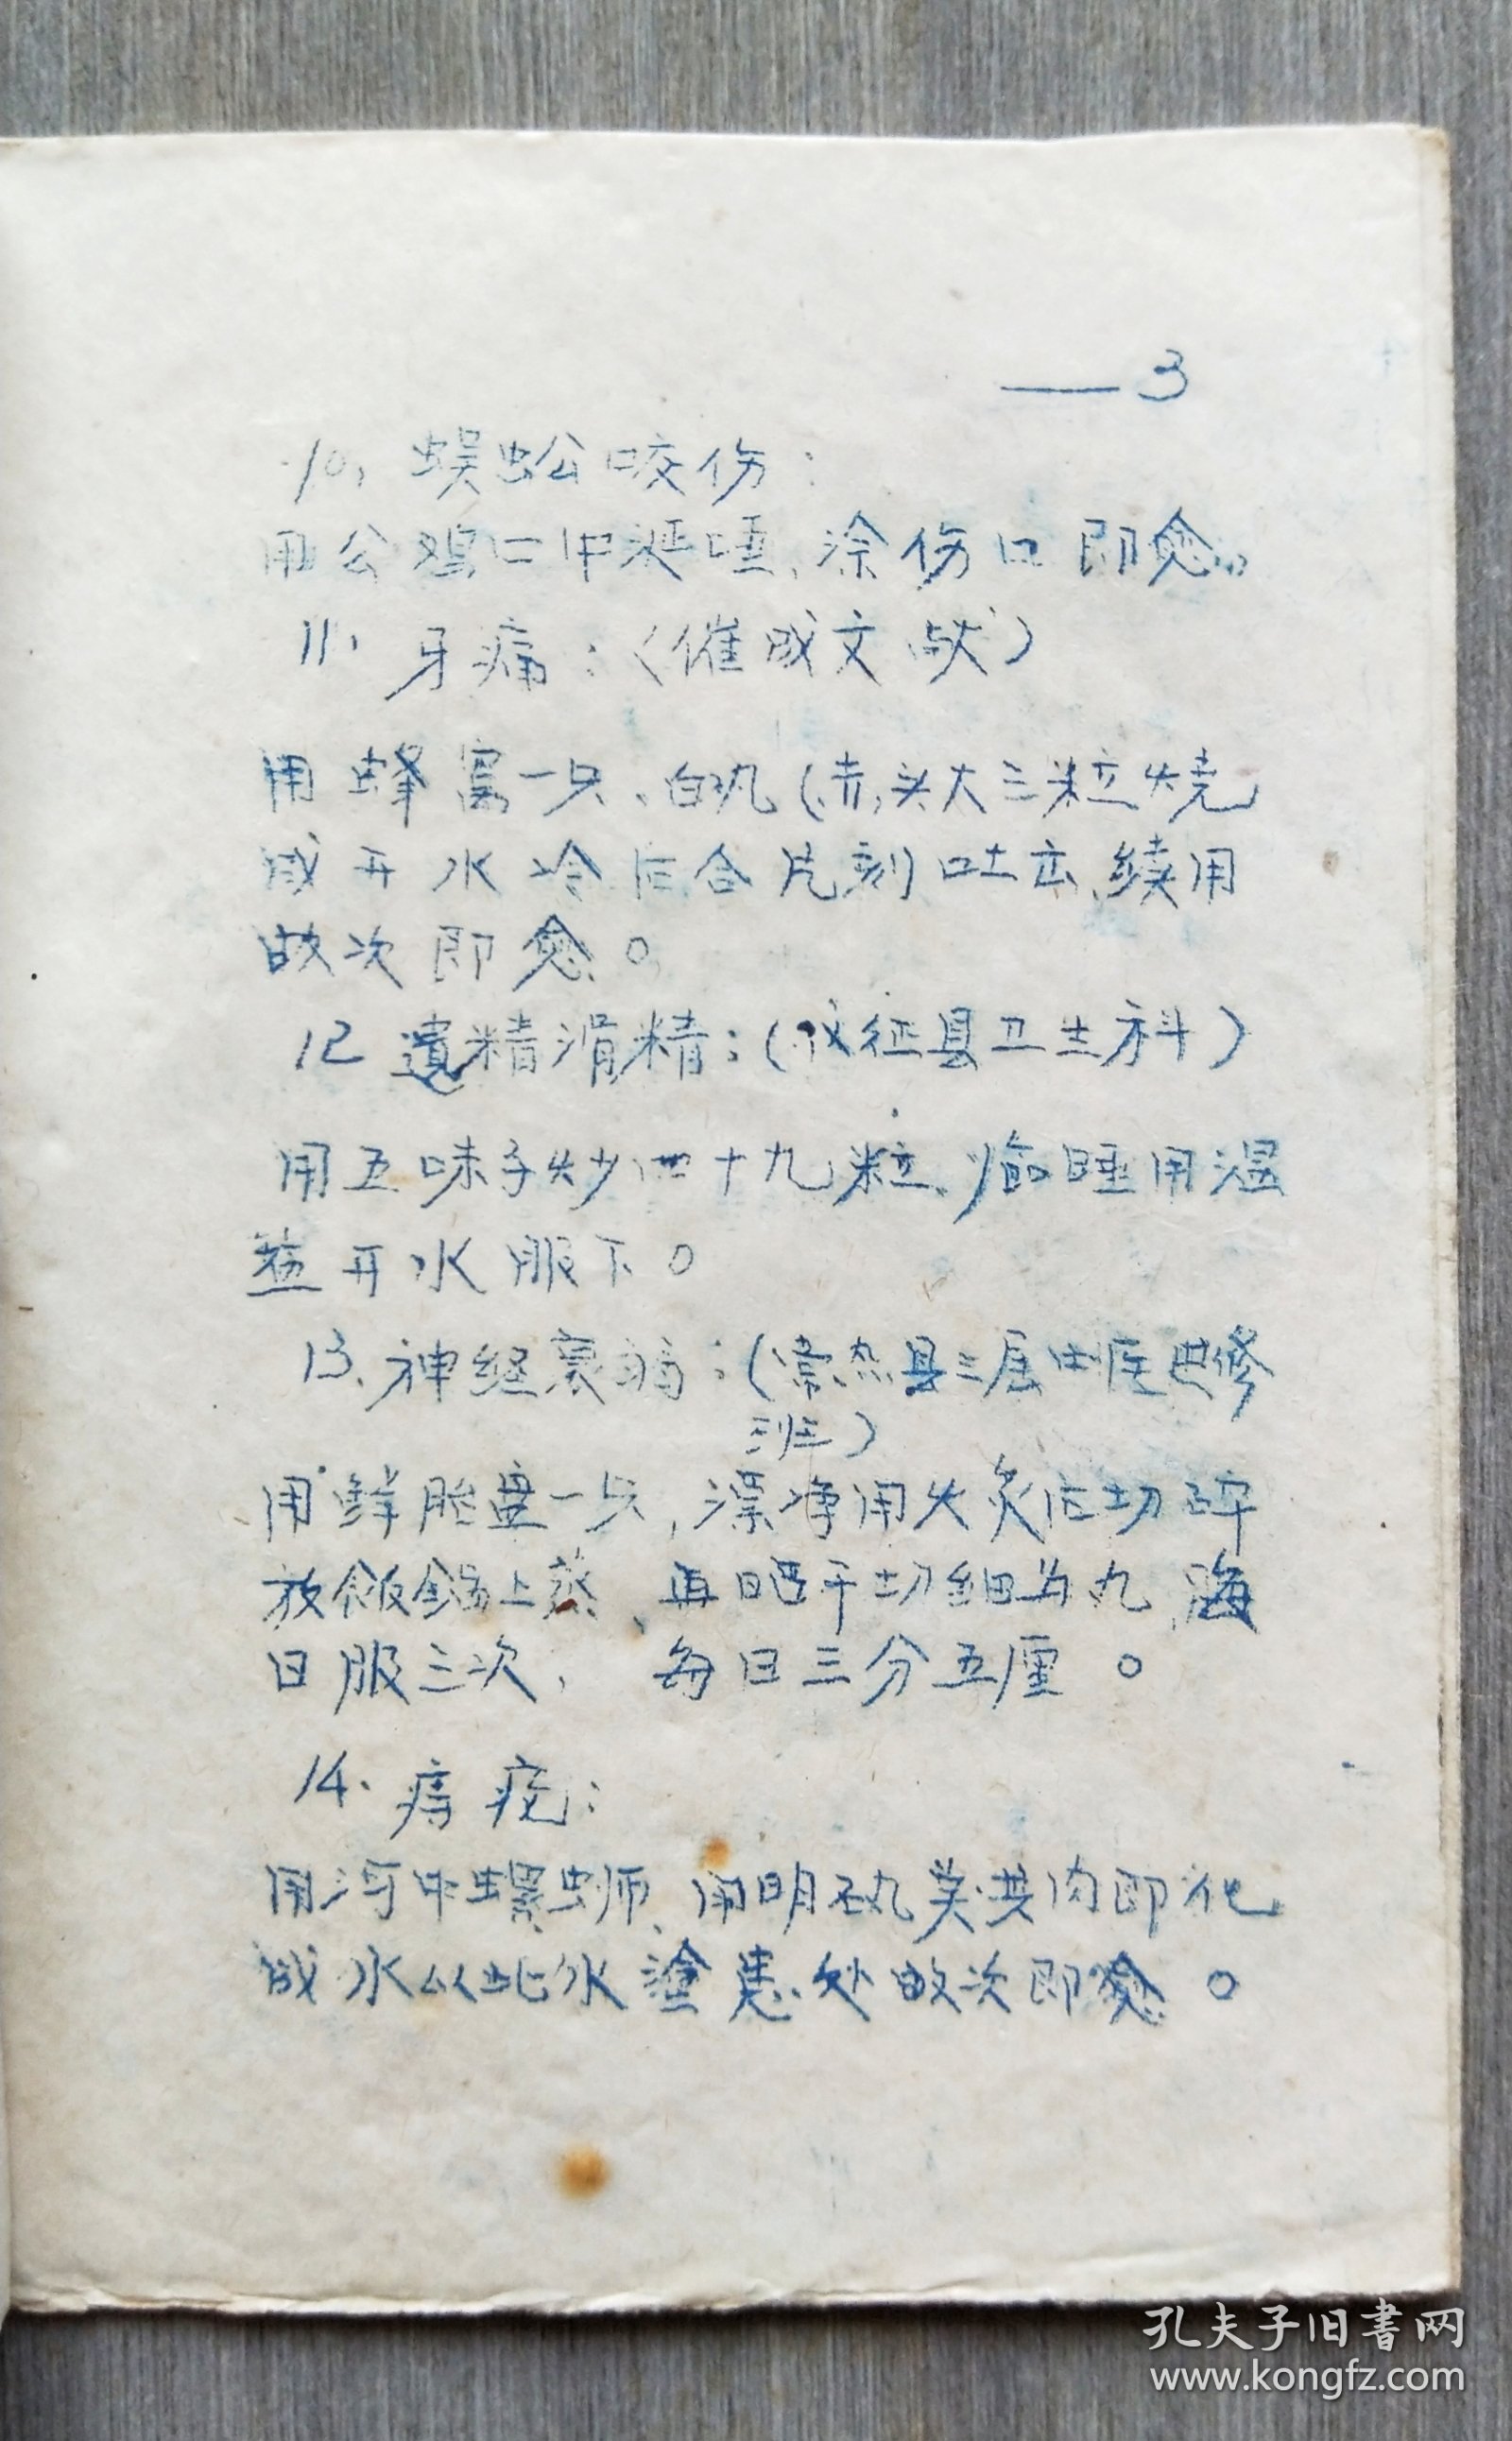 —3
10、蜈蚣咬伤：
用公鸡口中涎唾、涂伤口即愈。
11、牙痛：（催成文献）
用蜂窝一只、白矾（赤豆大三粒烧
成开水冷后含片刻吐去、续用
数次即愈。
12 遗精滑精：（仪征县卫生科）
用五味子炒四十九粒、临睡用温
盐开水服下。
13、神经衰弱：（常熟县三届中医进修
班）
用鲜胎盘一只，漂净用火炙后切碎
放饭锅上蒸、再晒干切细为丸，海
日服三次，每日三分五厘。
14、痔疮：
用河中螺蛳、用明矾美其肉即化
成水以此水塗患处数次即愈。
孔夫子旧書网
www.kongfz.com